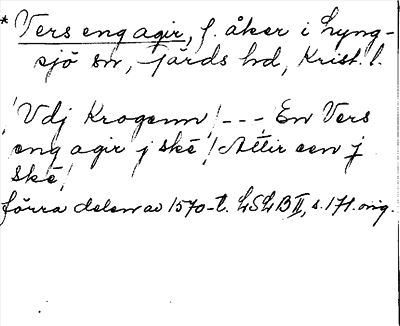 * Vers eng agir, f. åker i Lyng-
sjö sn, järds hd, Krist. l.
! Vdj Krogenn ! --- ! En Vers
eng agir j ske ! Attir een j
ske !
förra delen av 1570-t. LSLB II, s. 171. orig.